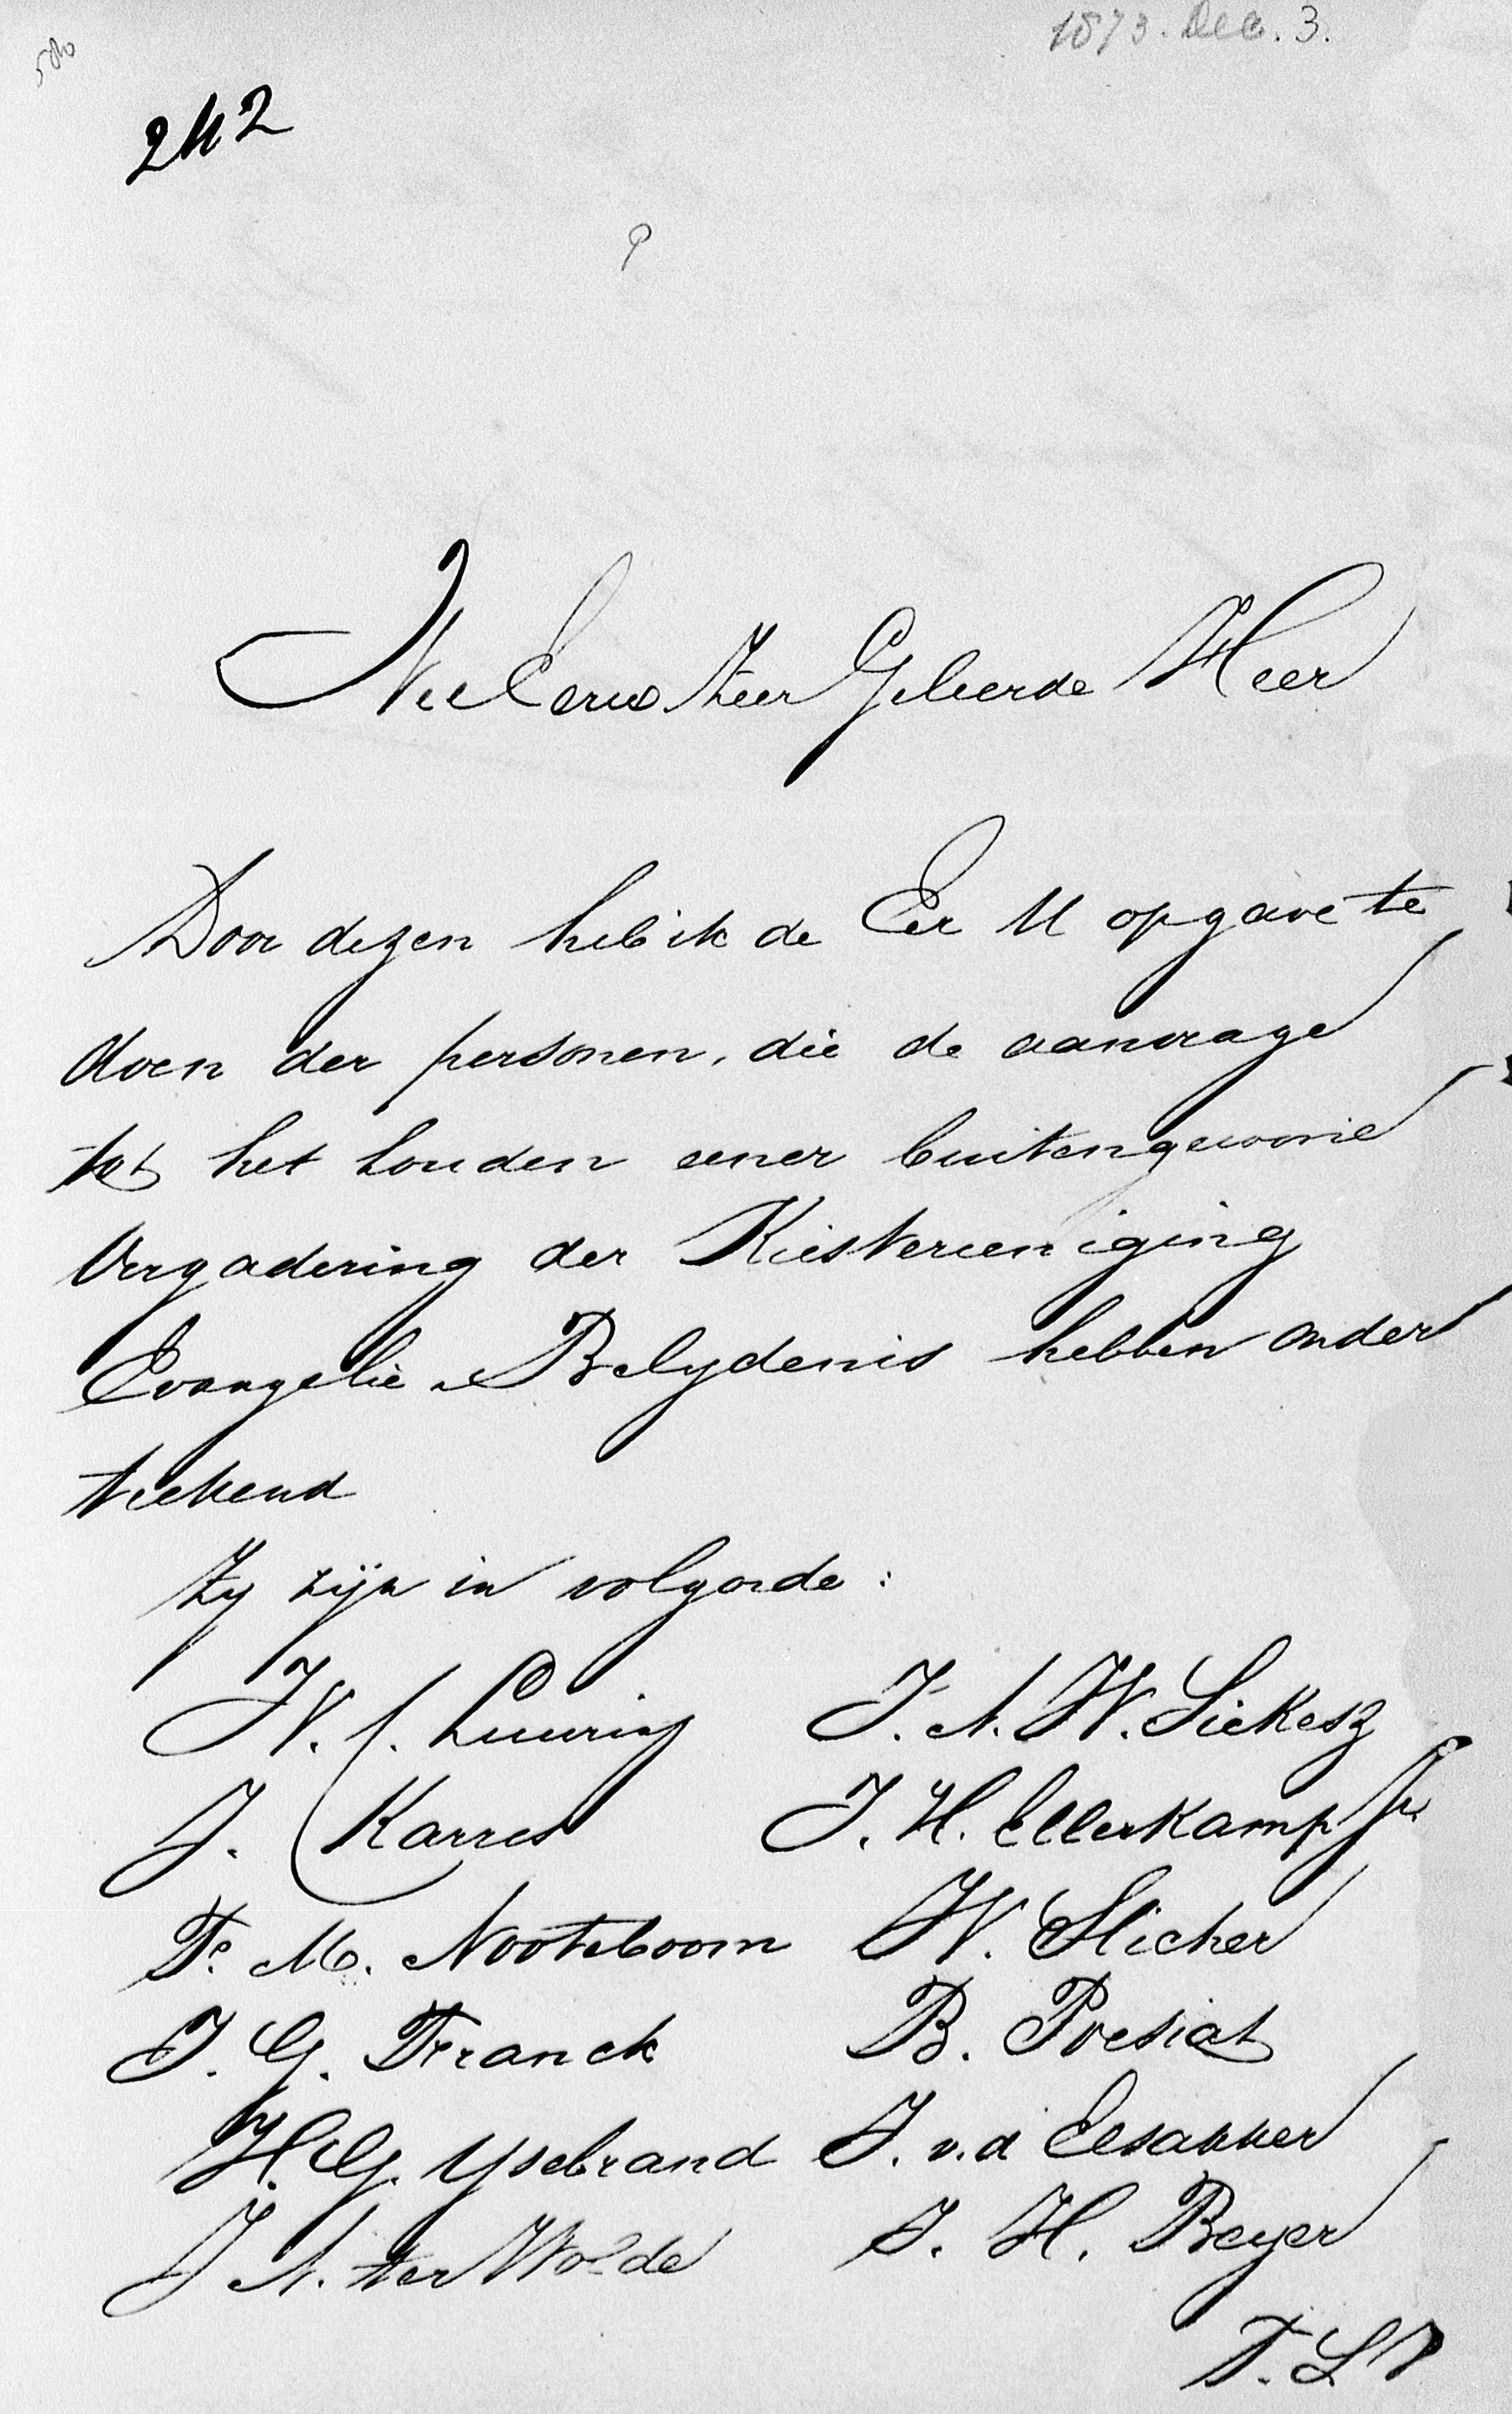 1873. Dec. 3.
580
242
Wel Eerw Zeer Geleerde Heer
Door dezen heb ik de Eer U opgave te
doen der personen, die de aanvrage
tot het houden eener buitengewone
Vergadering der Kiesvereeniging
Evangelie Belydenis hebben onder
teekend
Zy zijn in volgorde:
W. J. Luuring J. A. W. Siekesz
J. Karres J. H. Ellerkamp Jr
F. M. Nooteboom W. Slicher
J. G. Franck B. Poesiat
H. G. Ysebrand J. v. d Elsakker
J A. ter Wolde J. H. Beyer